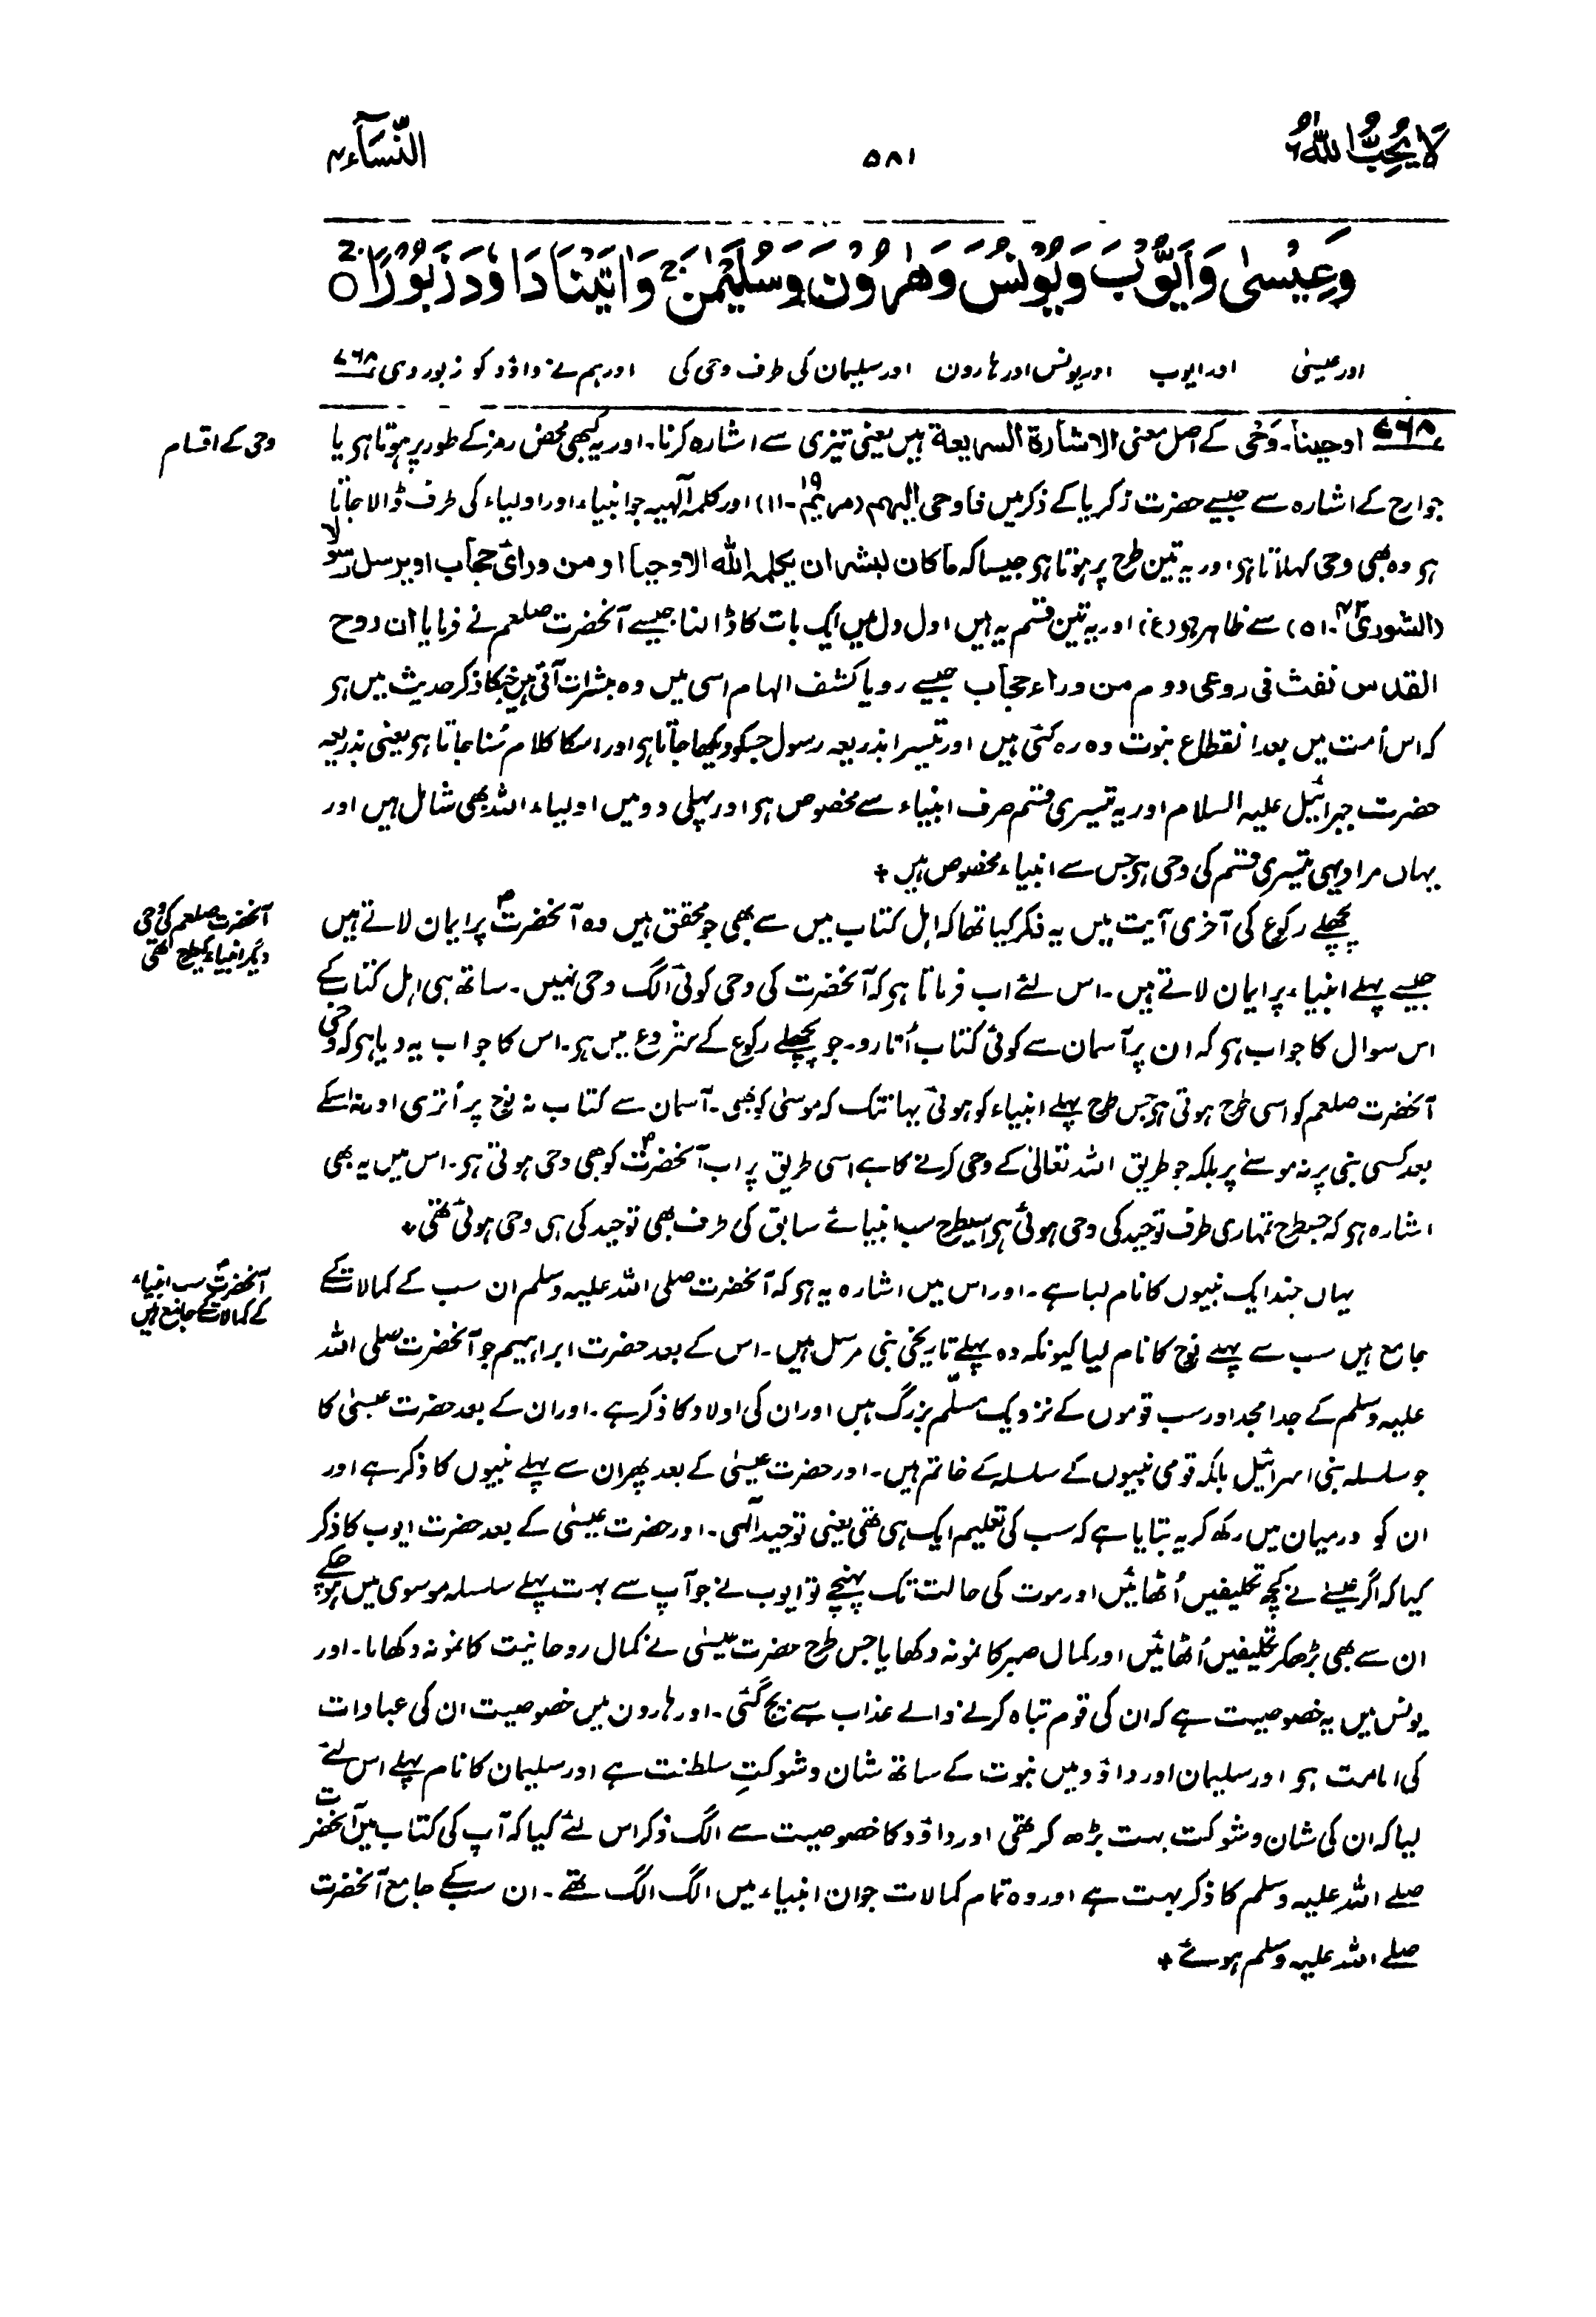 لَا يُحِبُّ اللهُ ٦
٥٨١
النِّسَآء ٤
وَعِيْسٰى وَاَيُّوْبَ وَيُوْنُسَ وَهٰرُوْنَ وَسُلَيْمٰنَ ۚ وَاٰتَيْنَا دَاوٗدَ زَبُوْرًا ۚ
اور عیسیٰ اور ایوب اور یونس اور ہارون اور سلیمان کی طرف وحی کی اور ہم نے داؤد کو زبور دی ۷۶۸
وحی کے اقسام
۷۶۸ اوحینا۔ وَحْی کے اصل معنی الاشارۃ السریعۃ ہیں یعنی تیزی سے اشارہ کرنا۔ اور یہ کبھی محض رمز کے طور پر ہوتا ہو یا
جوارح کے اشارہ سے جیسے حضرت زکریا کے ذکر میں فاوحی الیہم (مریم ۱۹-۱۱) اور کلمہ آلٰہیہ جو انبیاء اور اولیاء کی طرف ڈالا جاتا
ہو وہ بھی وحی کہلاتا ہو اور یہ تین طرح پر ہوتا ہو جیسا کہ ماکان لبشر ان یکلمہ اللہ الا وحیا او من ورائ حجاب او یرسل رسولا
(الشوریٰ ۴۲-۵۱) سے ظاہر ہو (غ) اور یہ تین قسم یہ ہیں اول دل میں ایک بات کا ڈالنا جیسے آنحضرت صلعم نے فرمایا ان روح
القدس نفث فی روعی دوم من وراء حجاب جیسے رویا کشف الہام اسی میں وہ مبشرات آتی ہیں جنکا ذکر حدیث میں ہو
کہ اس اُمت میں بعد انقطاع نبوت وہ رہ گئی ہیں اور تیسرا بذریعہ رسول جسکو دیکھا جاتا ہو اور اسکا کلام سُنا جاتا ہو یعنی بذریعہ
حضرت جبرائیل علیہ السلام اور یہ تیسری قسم صرف انبیاء سے مخصوص ہو اور پہلی دو میں اولیاء اللہ بھی شامل ہیں اور
یہاں مراد یہی تیسری قسم کی وحی ہو جس سے انبیاء مخصوص ہیں +
آنحضرت صلعم کی وحی
دیگر انبیاء کیطرح تھی
پچھلے رکوع کی آخری آیت میں یہ ذکر کیا تھا کہ اہل کتاب میں سے بھی جو محقق ہیں وہ آنحضرتؐ پر ایمان لاتے ہیں
جیسے پہلے انبیاء پر ایمان لاتے ہیں۔ اس لئے اب فرماتا ہو کہ آنحضرت کی وحی کوئی الگ وحی نہیں۔ ساتھ ہی اہل کتاب کے
اس سوال کا جواب ہو کہ ان پر آسمان سے کوئی کتاب اُتارو۔ جو پچھلے رکوع کے شروع میں ہو۔ اس کا جواب یہ دیا ہو کہ وحی
آنحضرت صلعم کو اسی طرح ہوتی ہو جس طرح پہلے انبیاء کو ہوئی یہانتک کہ موسیٰ کو بھی۔ آسمان سے کتاب نہ نوح پر اُتری اور نہ اسکے
بعد کسی نبی پر نہ موسےٰ پر بلکہ جو طریق اللہ تعالیٰ کے وحی کرنے کا ہے اسی طریق پر اب آنحضرتؐ کو بھی وحی ہوتی ہو۔ اس میں یہ بھی
اشارہ ہو کہ جسطرح تمہاری طرف توحید کی وحی ہوئی ہو اسیطرح سب انبیائے سابق کی طرف بھی توحید کی ہی وحی ہوئی تھی +
آنحضرتؐ سب انبیاء
کے کمالات کے جامع ہیں
یہاں چند ایک نبیوں کا نام لیا ہے۔ اور اس میں اشارہ یہ ہو کہ آنحضرت صلی اللہ علیہ وسلم ان سب کے کمالات کے
جامع ہیں سب سے پہلے نوح کا نام لیا کیونکہ وہ پہلے تاریخی نبی مرسل ہیں۔ اس کے بعد حضرت ابراہیم جو آنحضرت صلی اللہ
علیہ وسلم کے جد امجد اور سب قوموں کے نزدیک مسلّم بزرگ ہیں اور ان کی اولاد کا ذکر ہے۔ اور ان کے بعد حضرت عیسیٰ کا
جو سلسلہ بنی اسرائیل بلکہ قومی نبیوں کے سلسلہ کے خاتم ہیں۔ اور حضرت عیسیٰ کے بعد پھر ان سے پہلے نبیوں کا ذکر ہے اور
ان کو درمیان میں رکھ کر یہ بتایا ہے کہ سب کی تعلیم ایک ہی تھی یعنی توحید الٰہی۔ اور حضرت عیسیٰ کے بعد حضرت ایوب کا ذکر
کیا کہ اگر عیسےٰ نے کچھ تکلیفیں اُٹھائیں اور موت کی حالت تک پہنچے تو ایوب نے جو آپ سے بہت پہلے سلسلہ موسوی میں ہو چکے
ان سے بھی بڑھکر تکلیفیں اُٹھائیں اور کمال صبر کا نمونہ دکھایا جس طرح حضرت عیسیٰ نے کمال روحانیت کا نمونہ دکھایا۔ اور
یونس میں یہ خصوصیت ہے کہ ان کی قوم تباہ کرنے والے عذاب سے بچ گئی۔ اور ہارون میں خصوصیت ان کی عبادات
کی امامت ہو اور سلیمان اور داؤد میں نبوت کے ساتھ شان و شوکتِ سلطنت ہے اور سلیمان کا نام پہلے اس لئے
لیا کہ ان کی شان و شوکت بہت بڑھ کر تھی اور داؤد کا خصوصیت سے الگ ذکر اس لئے کیا کہ آپ کی کتاب میں آنحضرت
صلے اللہ علیہ وسلم کا ذکر بہت ہے اور وہ تمام کمالات جو ان انبیاء میں الگ الگ تھے۔ ان سب کے جامع آنحضرت
صلے اللہ علیہ وسلم ہوئے +